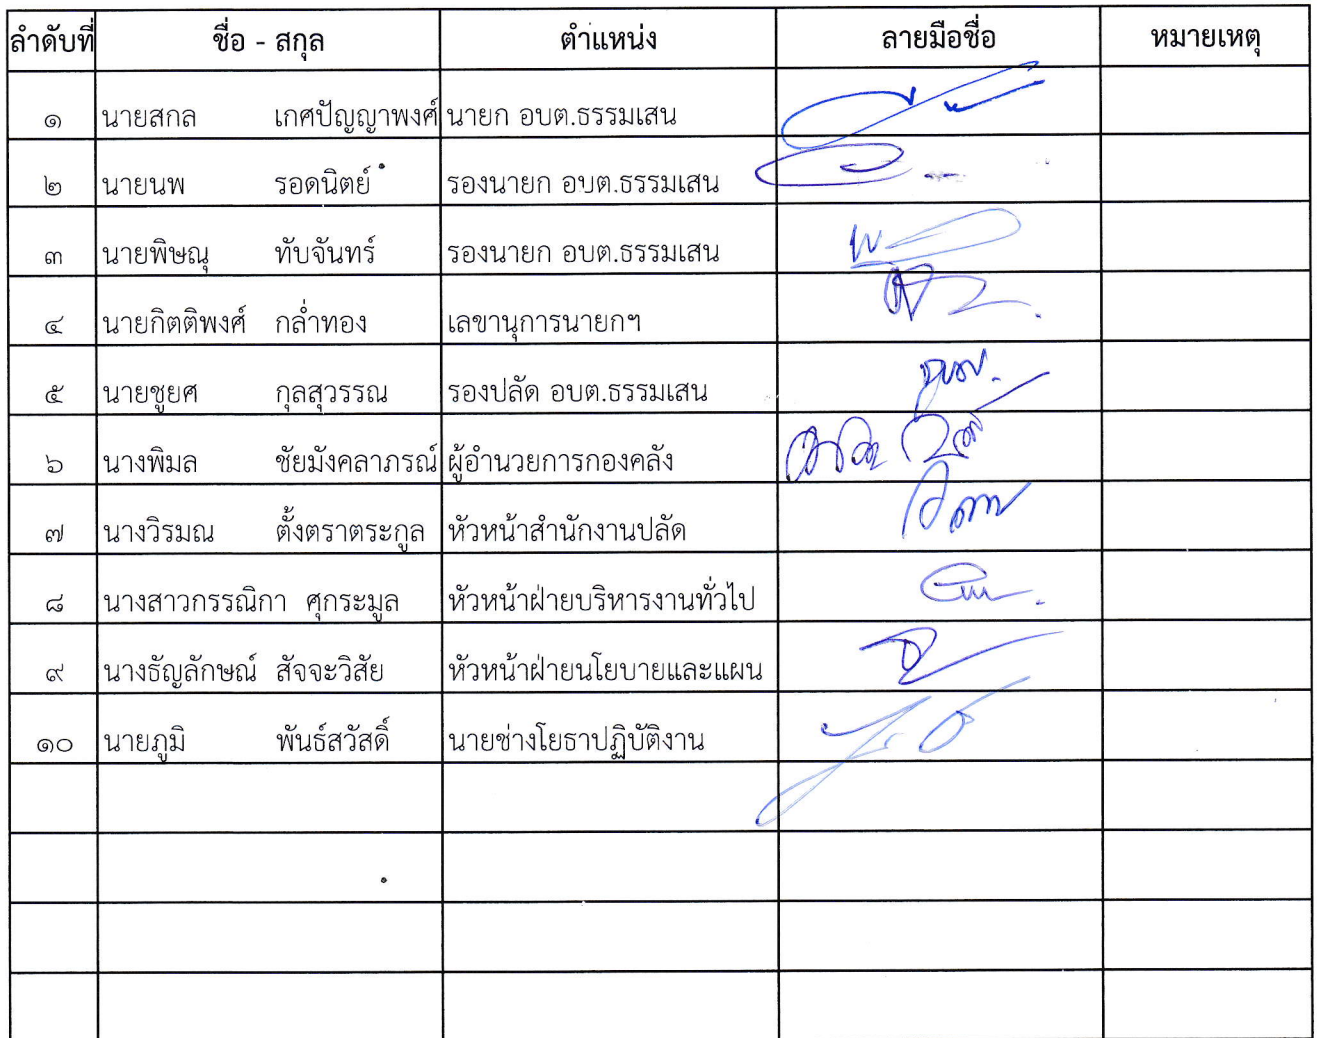 ลำดับที่ ชื่อ - สกุล ตำแหน่ง ลายมือชื่อ หมายเหตุ
๑ นายสกล เกศปัญญาพงศ์ นายก อบต.ธรรมเสน
๒ นายนพ รอดนิตย์ รองนายก อบต.ธรรมเสน
๓ นายพิษณุ ทับจันทร์ รองนายก อบต.ธรรมเสน
๔ นายกิตติพงศ์ กล่ำทอง เลขานุการนายกฯ
๕ นายชูยศ กุลสุวรรณ รองปลัด อบต.ธรรมเสน
๖ นางพิมล ชัยมังคลาภรณ์ ผู้อำนวยการกองคลัง
๗ นางวิรมณ ตั้งตราตระกูล หัวหน้าสำนักงานปลัด
๘ นางสาวกรรณิกา ศุกระมูล หัวหน้าฝ่ายบริหารงานทั่วไป
๙ นางธัญลักษณ์ สัจจะวิสัย หัวหน้าฝ่ายนโยบายและแผน
๑๐ นายภูมิ พันธ์สวัสดิ์ นายช่างโยธาปฏิบัติงาน